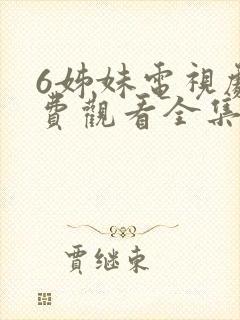 6姊妹電視劇
費觀看全集
賈继東